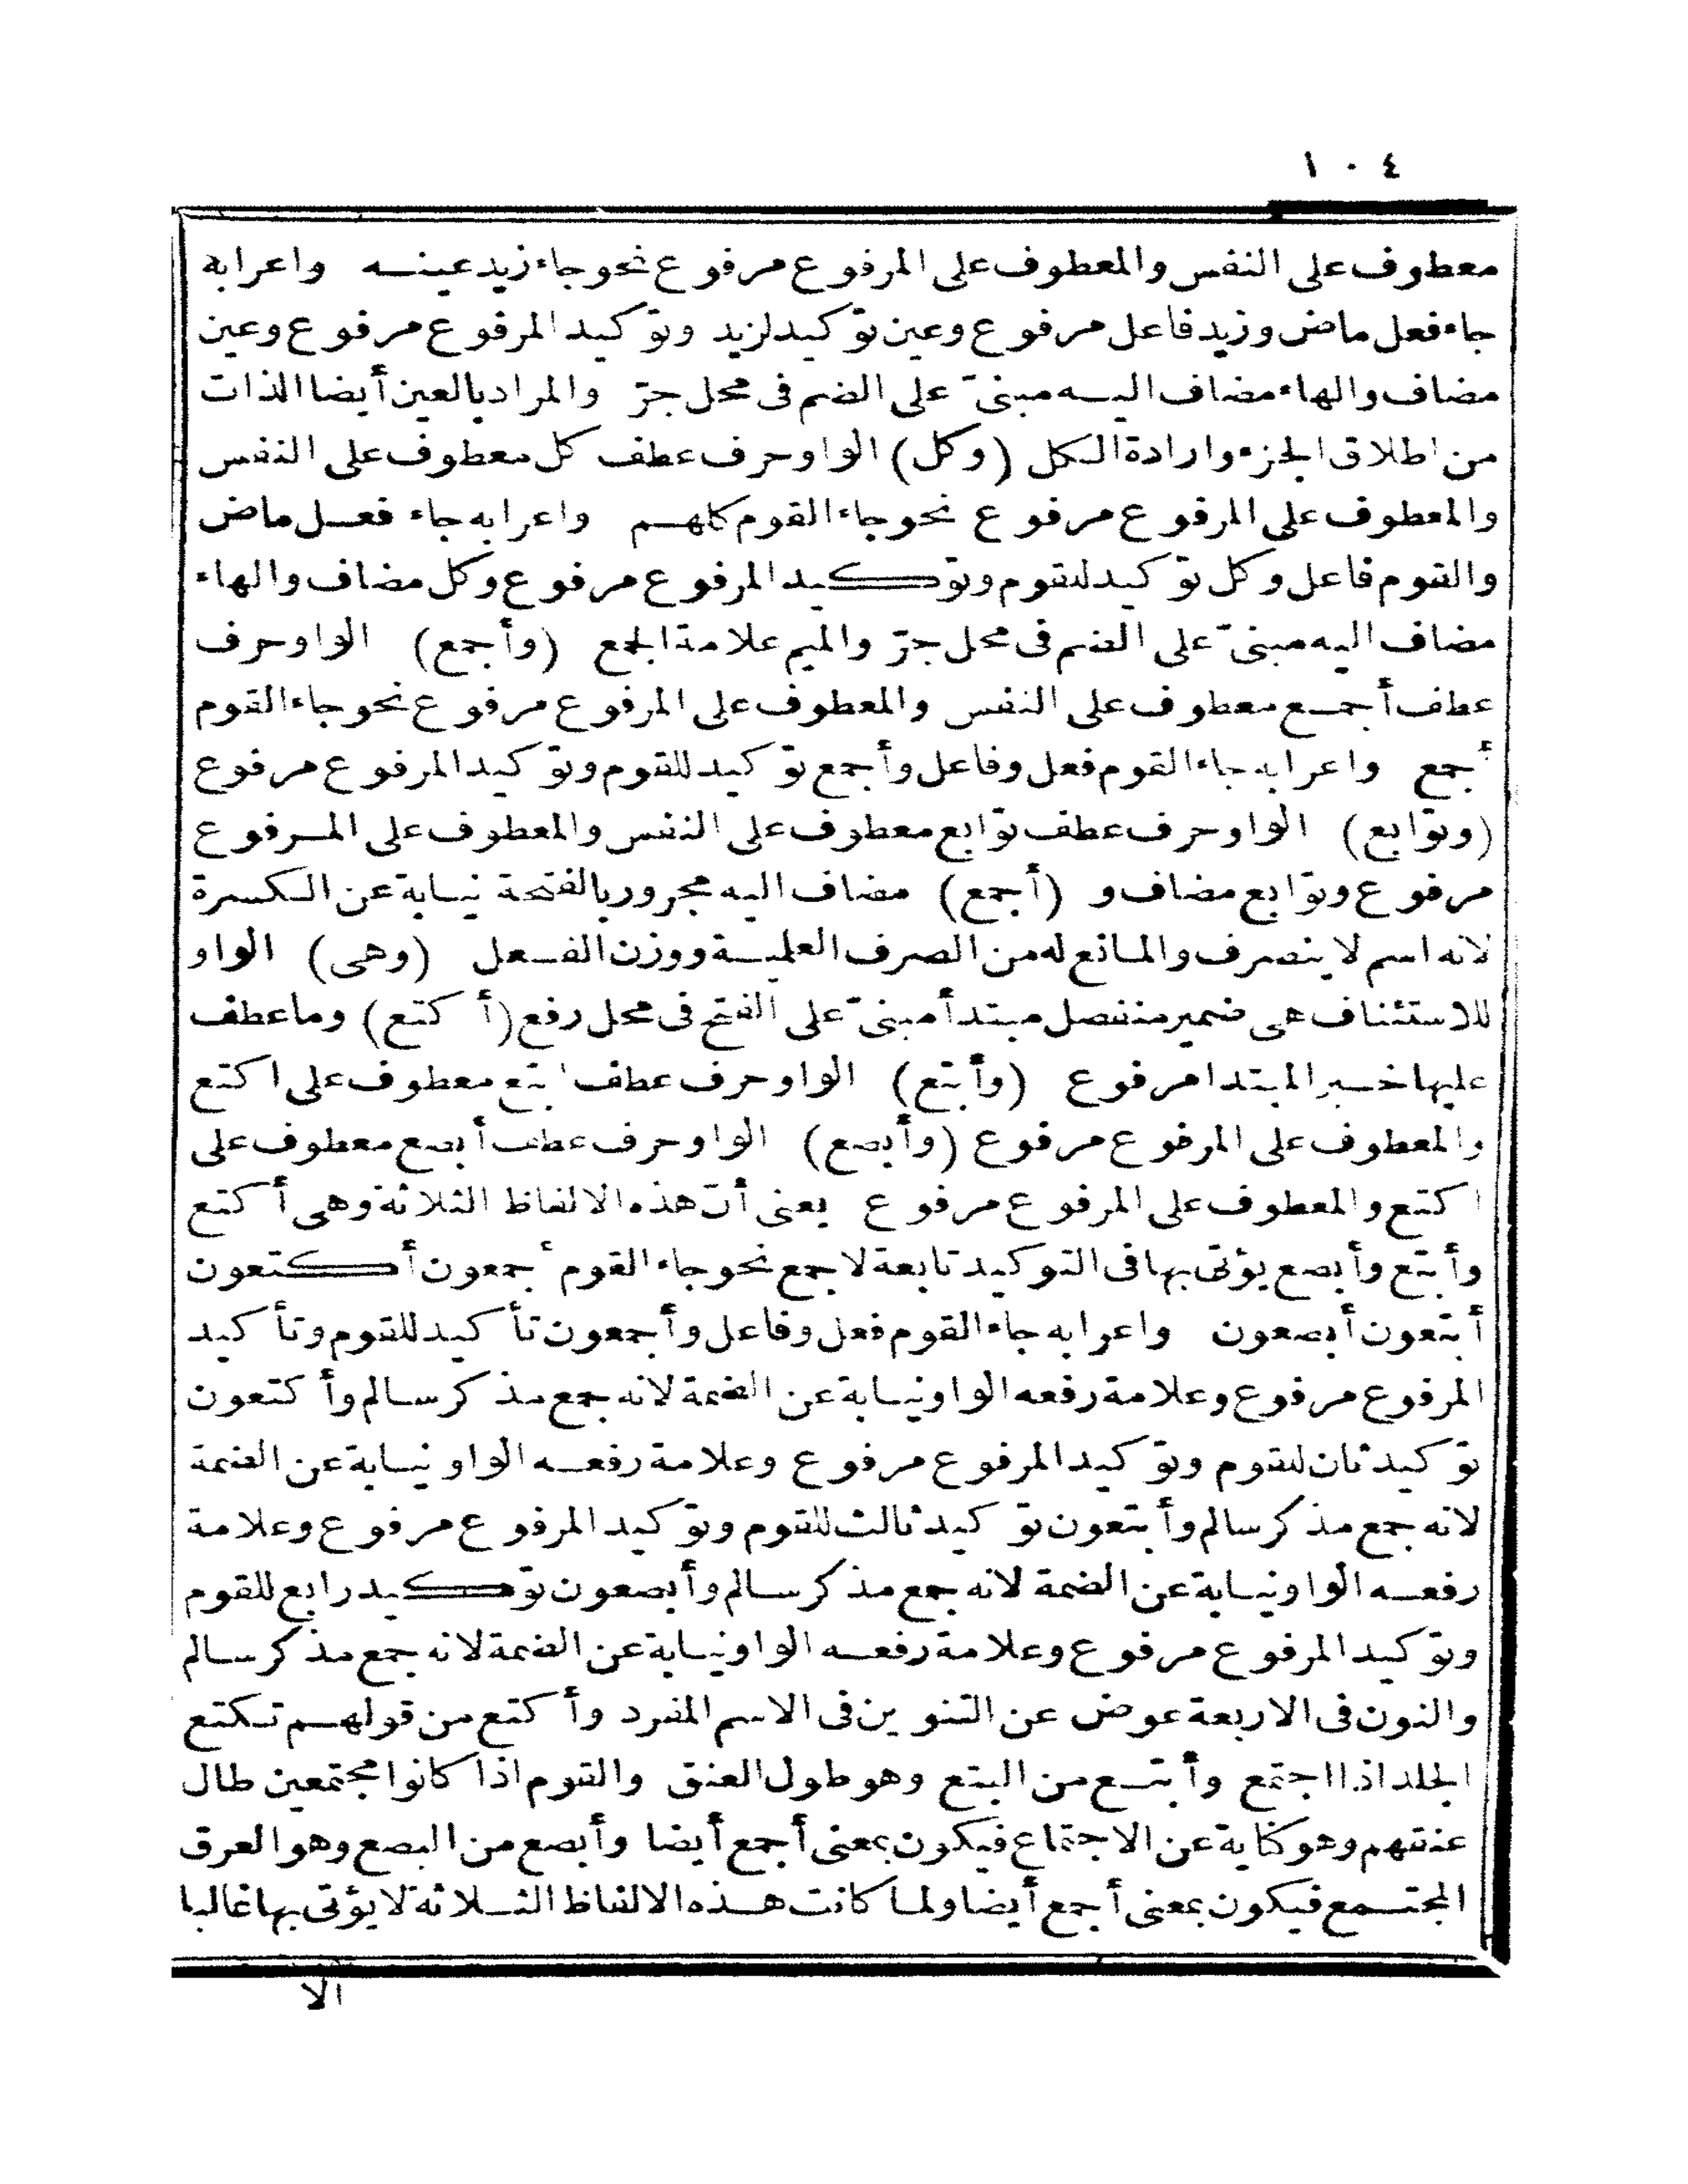 ١٠٤
معطوف على النفس والمعطوف على المرفوع مرفوع نحو جاء زيد عينه واعرابه
جاء فعل ماض وزيد فاعل مرفوع وعين توكيد لزيد وتوكيد المرفوع مرفوع وعين
مضاف والهاء مضاف اليه مبنىّ على الضم فى محل جرّ والمراد بالعين أيضا الذات
من اطلاق الجزء وارادة الكل (وكل) الواو حرف عطف كل معطوف على النفس
والمعطوف على المرفوع مرفوع نحو جاء القوم كلهم واعرابه جاء فعل ماض
والقوم فاعل وكل توكيد للقوم وتوكيد المرفوع مرفوع وكل مضاف والهاء
مضاف اليه مبنىّ على الضم فى محل جرّ والميم علامة الجمع (وأجمع) الواو حرف
عطف أجمع معطوف على النفس والمعطوف على المرفوع مرفوع نحو جاء القوم
أجمع واعرابه جاء القوم فعل وفاعل وأجمع توكيد للقوم وتوكيد المرفوع مرفوع
(وتوابع) الواو حرف عطف توابع معطوف على النفس والمعطوف على المرفوع
مرفوع وتوابع مضاف و (أجمع) مضاف اليه مجرور بالفتحة نيابة عن الكسرة
لانه اسم لا ينصرف والمانع له من الصرف العلمية ووزن الفعل (وهى) الواو
للاستئناف هى ضمير منفصل مبتدأ مبنىّ على الفتح فى محل رفع (أكتع) وما عطف
عليها خبر المبتدا مرفوع (وأبتع) الواو حرف عطف ابتع معطوف على اكتع
والمعطوف على المرفوع مرفوع (وأبصع) الواو حرف عطف أبصع معطوف على
اكتع والمعطوف على المرفوع مرفوع يعنى أنّ هذه الالفاظ الثلاثة وهى أكتع
وأبتع وأبصع يؤتى بها فى التوكيد تابعة لاجمع نحو جاء القوم أجمعون أكتعون
أبتعون أبصعون واعرابه جاء القوم فعل وفاعل وأجمعون تأكيد للقوم وتأكيد
المرفوع مرفوع وعلامة رفعه الواو نيابة عن الضمة لانه جمع مذكر سالم وأكتعون
توكيد ثان للقوم وتوكيد المرفوع مرفوع وعلامة رفعه الواو نيابة عن الضمة
لانه جمع مذكر سالم وأبتعون توكيد ثالث للقوم وتوكيد المرفوع مرفوع وعلامة
رفعه الواو نيابة عن الضمة لانه جمع مذكر سالم وأبصعون توكيد رابع للقوم
وتوكيد المرفوع مرفوع وعلامة رفعه الواو نيابة عن الضمة لانه جمع مذكر سالم
والنون فى الاربعة عوض عن التنوين فى الاسم المفرد وأكتع من قولهم تكتع
الجلد اذا اجتمع وأبتع من البتع وهو طول العنق والقوم اذا كانوا مجتمعين طال
عنقهم وهو كناية عن الاجتماع فيكون بمعنى أجمع أيضا وأبصع من البصع وهو العرق
المجتمع فيكون بمعنى أجمع أيضا ولما كانت هذه الالفاظ الثلاثة لا يؤتى بها غالبا
الا